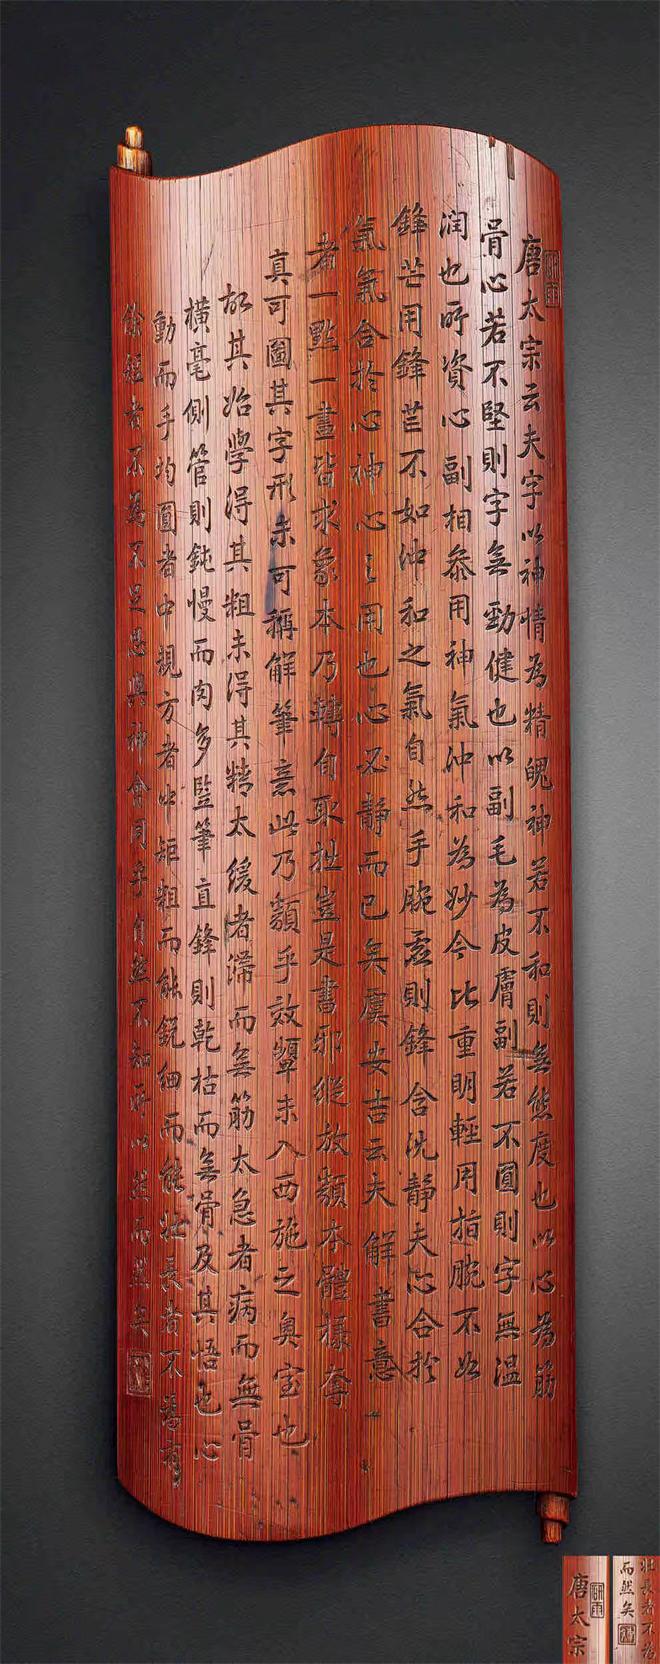 唐太宗云夫字以神情為精魄神若不和則無態度也以心為筋
骨心若不堅則字無勁健也以副毛為皮膚副若不圓則字無溫
潤也所資心副相參用神氣沖和為妙今比重明輕用指腕不如
鋒芒用鋒芒不如沖和之氣自然手腕虛則鋒含沈靜夫心合於
氣氣合於心神心之用也心必靜而已矣虞安吉云夫解書意
者一點一畫皆求象本乃轉自取拙豈是書邪縱放類本體樣奪
真可圖其字形未可稱解筆意此乃類乎效顰未入西施之奧室也
故其始學得其粗未得其精太緩者滯而無筋太急者病而無骨
橫毫側管則鈍慢而肉多豎筆直鋒則乾枯而無骨及其悟也心
動而手均圓者中規方者中矩粗而能銳細而能壯長者不為有
餘短者不為不足思與神會同乎自然不知所以然而然矣
唐太宗
壯長者不為
而然矣